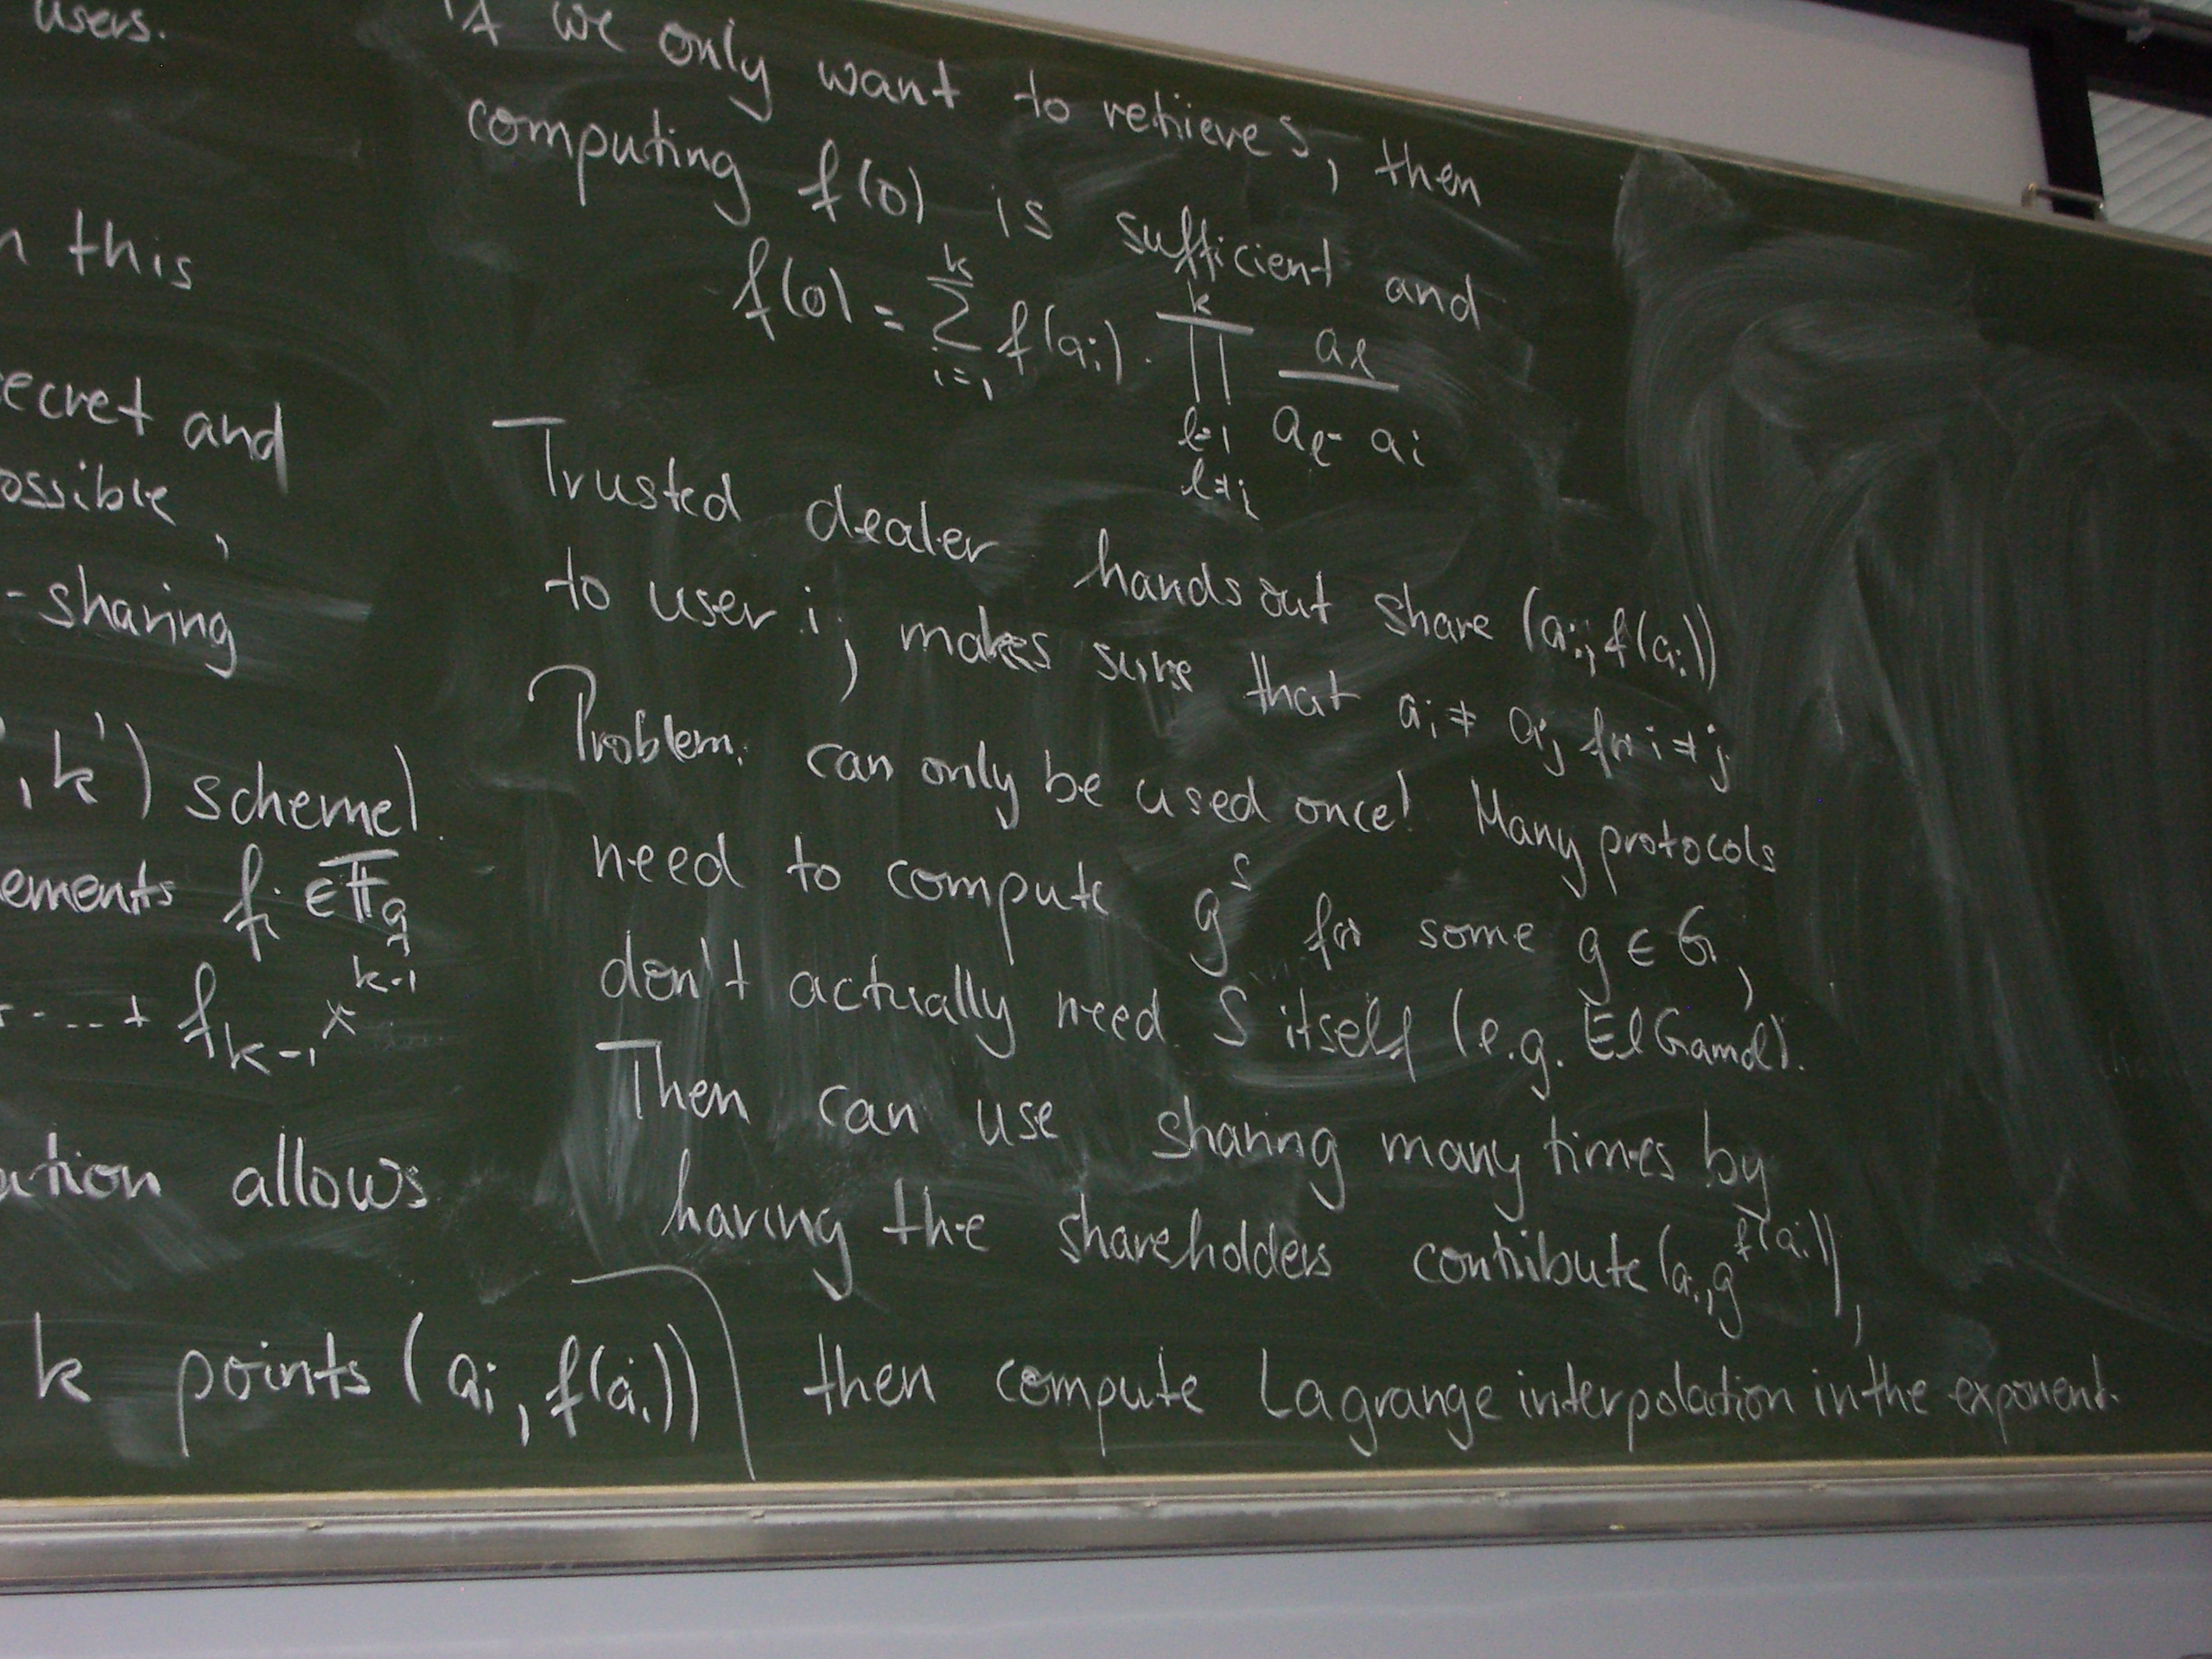 users.
n this
ecret and
ossible,
-sharing
, k') scheme).
ements fᵢ ∈ 𝔽q
+ ... + fₖ₋₁ xᵏ⁻¹
ation allows
k points (aᵢ, f(aᵢ))
If we only want to retrieve s, then
computing f(0) is sufficient and
f(0) = ∑ᵢ₌₁ᵏ f(aᵢ) · ∏ₗ₌₁, ₗ≠ᵢᵏ aₗ / (aₗ - aᵢ)
Trusted dealer hands out share (aᵢ, f(aᵢ))
to user i, makes sure that aᵢ ≠ aⱼ for i ≠ j
Problem: can only be used once! Many protocols
need to compute gˢ for some g ∈ G,
don't actually need s itself (e.g. ElGamal).
Then can use sharing many times by
having the shareholders contribute (aᵢ, g^f(aᵢ)),
then compute Lagrange interpolation in the exponent.